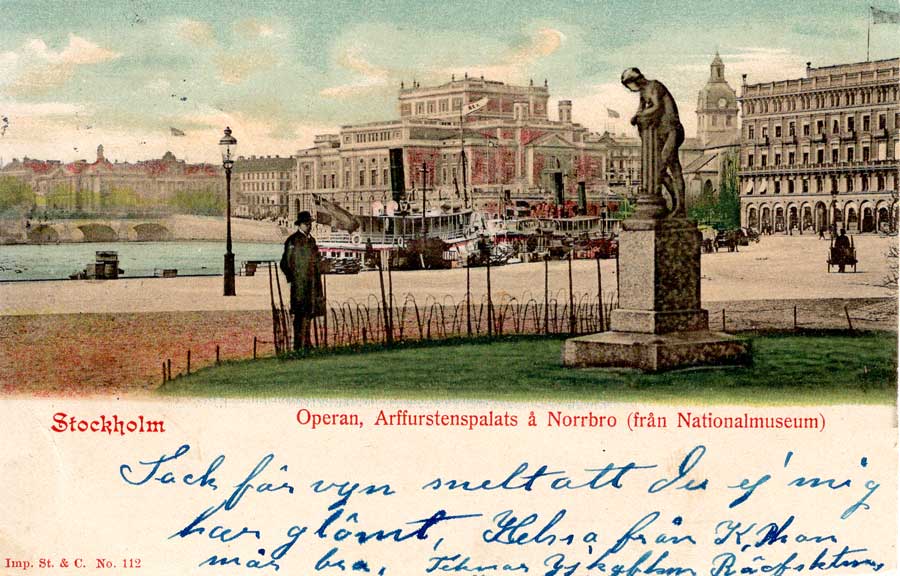 Stockholm
Operan, Arffurstenspalats å Norrbro (från Nationalmuseum)
Tack för vyn snelt att du ej mig
har glömt, Helsa från K,
mår bra,
Imp. St. & C. No. 112